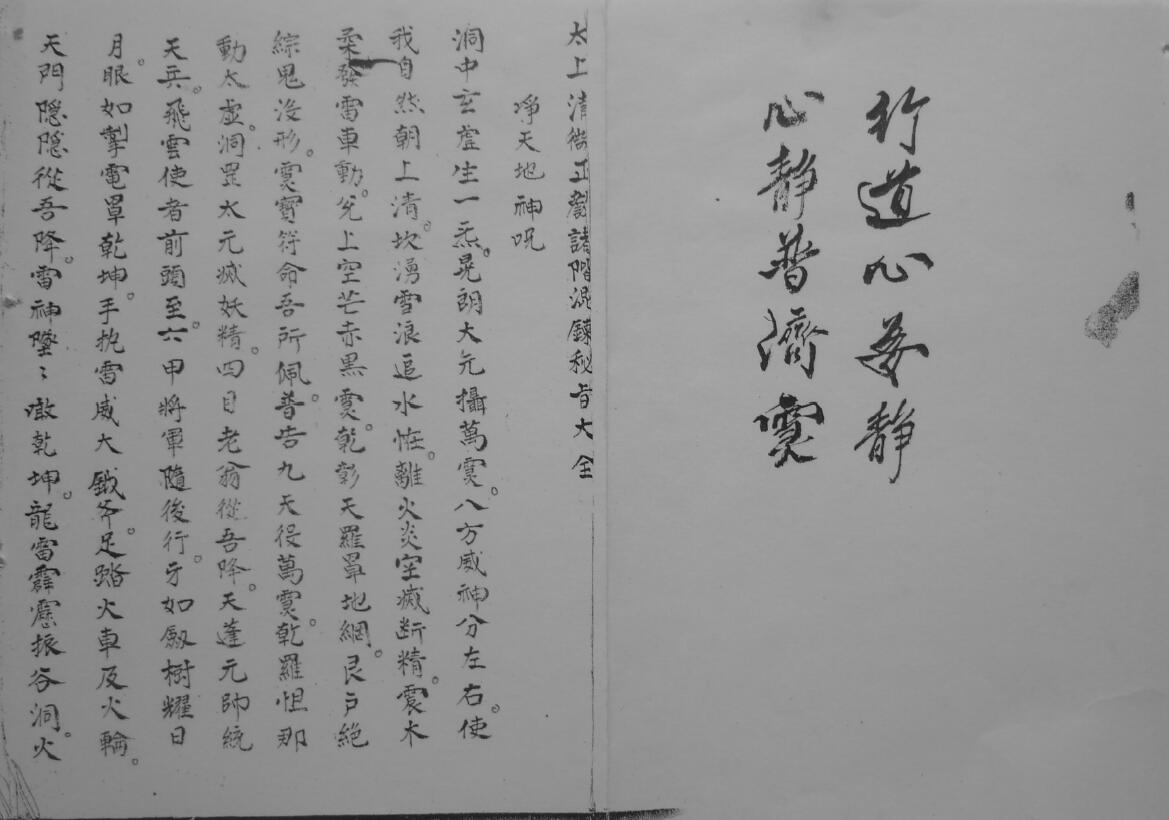 行道心要静
心静普濟靈
太上清微正剳諸階混鍊秘旨大全
净天地神呪
洞中玄虛生一炁。晃朗大元攝萬灵。八方威神分左右。使
我自然朝上清。坎湧雪浪追水怪。離火炎空滅断精。震木
柔發雷車動。兌上空芒赤黑灵。乾彰天羅罩地網。艮戸絶
綜鬼沒形。灵寶符命吾所佩。普告九天役萬灵。乾羅怛那
動太虛。洞罡太元滅妖精。四目老翁從吾降。天蓬元帥統
天兵。飛雲使者前頭至。六甲將軍隨後行。牙如劔樹耀日
月。眼如掣電罩乾坤。手执雷威大鉞斧。足踏火車及火輪。
天門隠隠從吾降。雷神墜〻徹乾坤。龍雷霹靂振谷洞。火